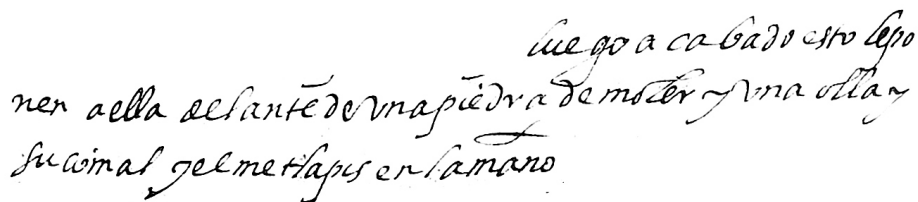 luego acabado esto lepo
nen aella delante de vna piedra de moler y vna olla y
su comal y el metlapis en la mano